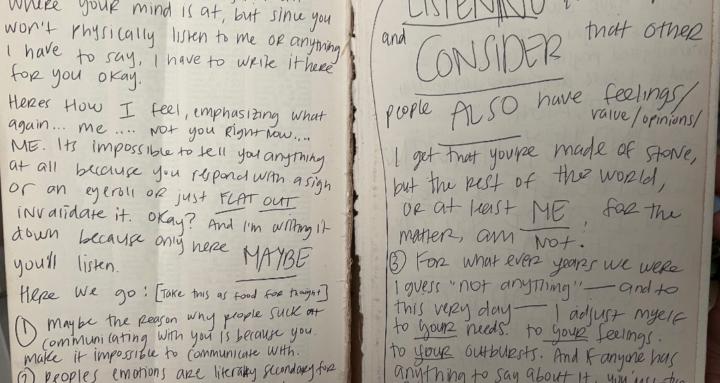 where your mind is at, but since you
won't physically listen to me or anything
I have to say, I have to write it here
for you okay.
Heres How I feel, emphasizing what
again... me .... Not you right now....
ME. Its impossible to tell you anything
at all because you respond with a sigh
or an eyeroll or just FLAT OUT
invalidate it. Okay? And I'm writing it
down because only here MAYBE
you'll listen.
Here we go: [Take this as food for thought]
① maybe the reason why people suck at
communicating with you is because you
make it impossible to communicate with.
② peoples emotions are literally secondary for
LISTENING
and CONSIDER that other
people ALSO have feelings/
value/opinions/
I get that you're made of stone,
but the rest of the world,
or at least ME, for the
matter, am NOT.
③ For what ever years we were
I guess "not anything" — and to
this very day — I adjust myself
to your needs. to your feelings.
to your outbursts. And if anyone has
anything to say about it,